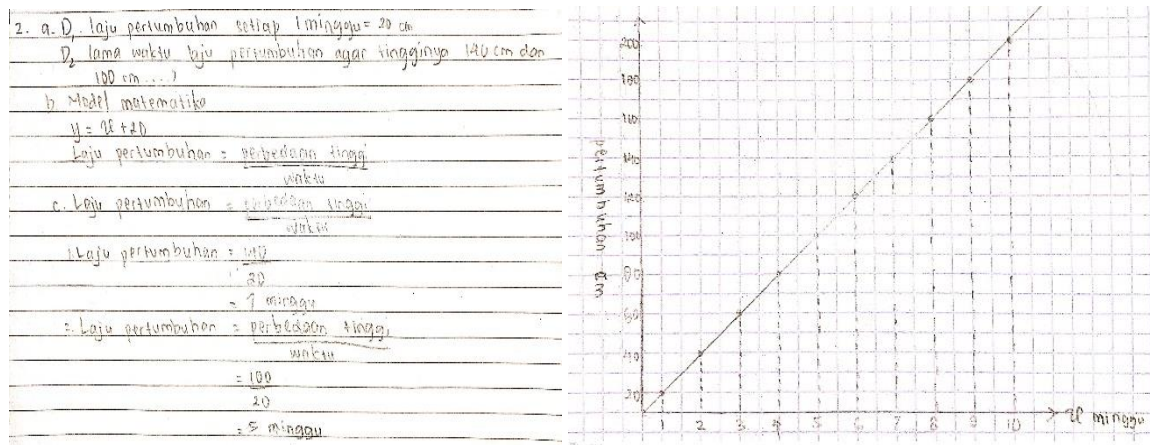 2. a. D₁. laju pertumbuhan setiap 1 minggu = 20 cm
D₂ lama waktu laju pertumbuhan agar tingginya 140 cm dan
100 cm....?
b. Model matematika
y = x + 20
Laju pertumbuhan = perbedaan tinggi
waktu
c. Laju pertumbuhan = perbedaan tinggi
waktu
1. Laju pertumbuhan = 140
20
= 7 minggu
2. Laju pertumbuhan = perbedaan tinggi
waktu
= 100
20
= 5 minggu
pertumbuhan cm
200
180
160
140
120
100
80
60
40
20
1 2 3 4 5 6 7 8 9 10 x minggu